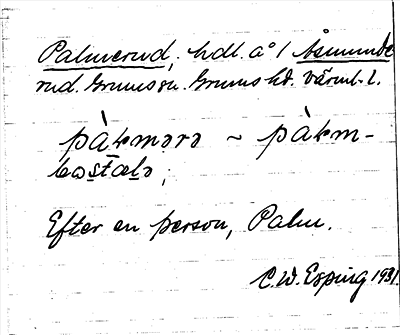 Palmerud, hdl. å 1 Åsmunde
rud. Grums sn. Grums hd. Värml. l.
pàʀmərə ~ pàʀm-
bəstælə;
Efter en person, Palm.
C.W. Esping 1931.